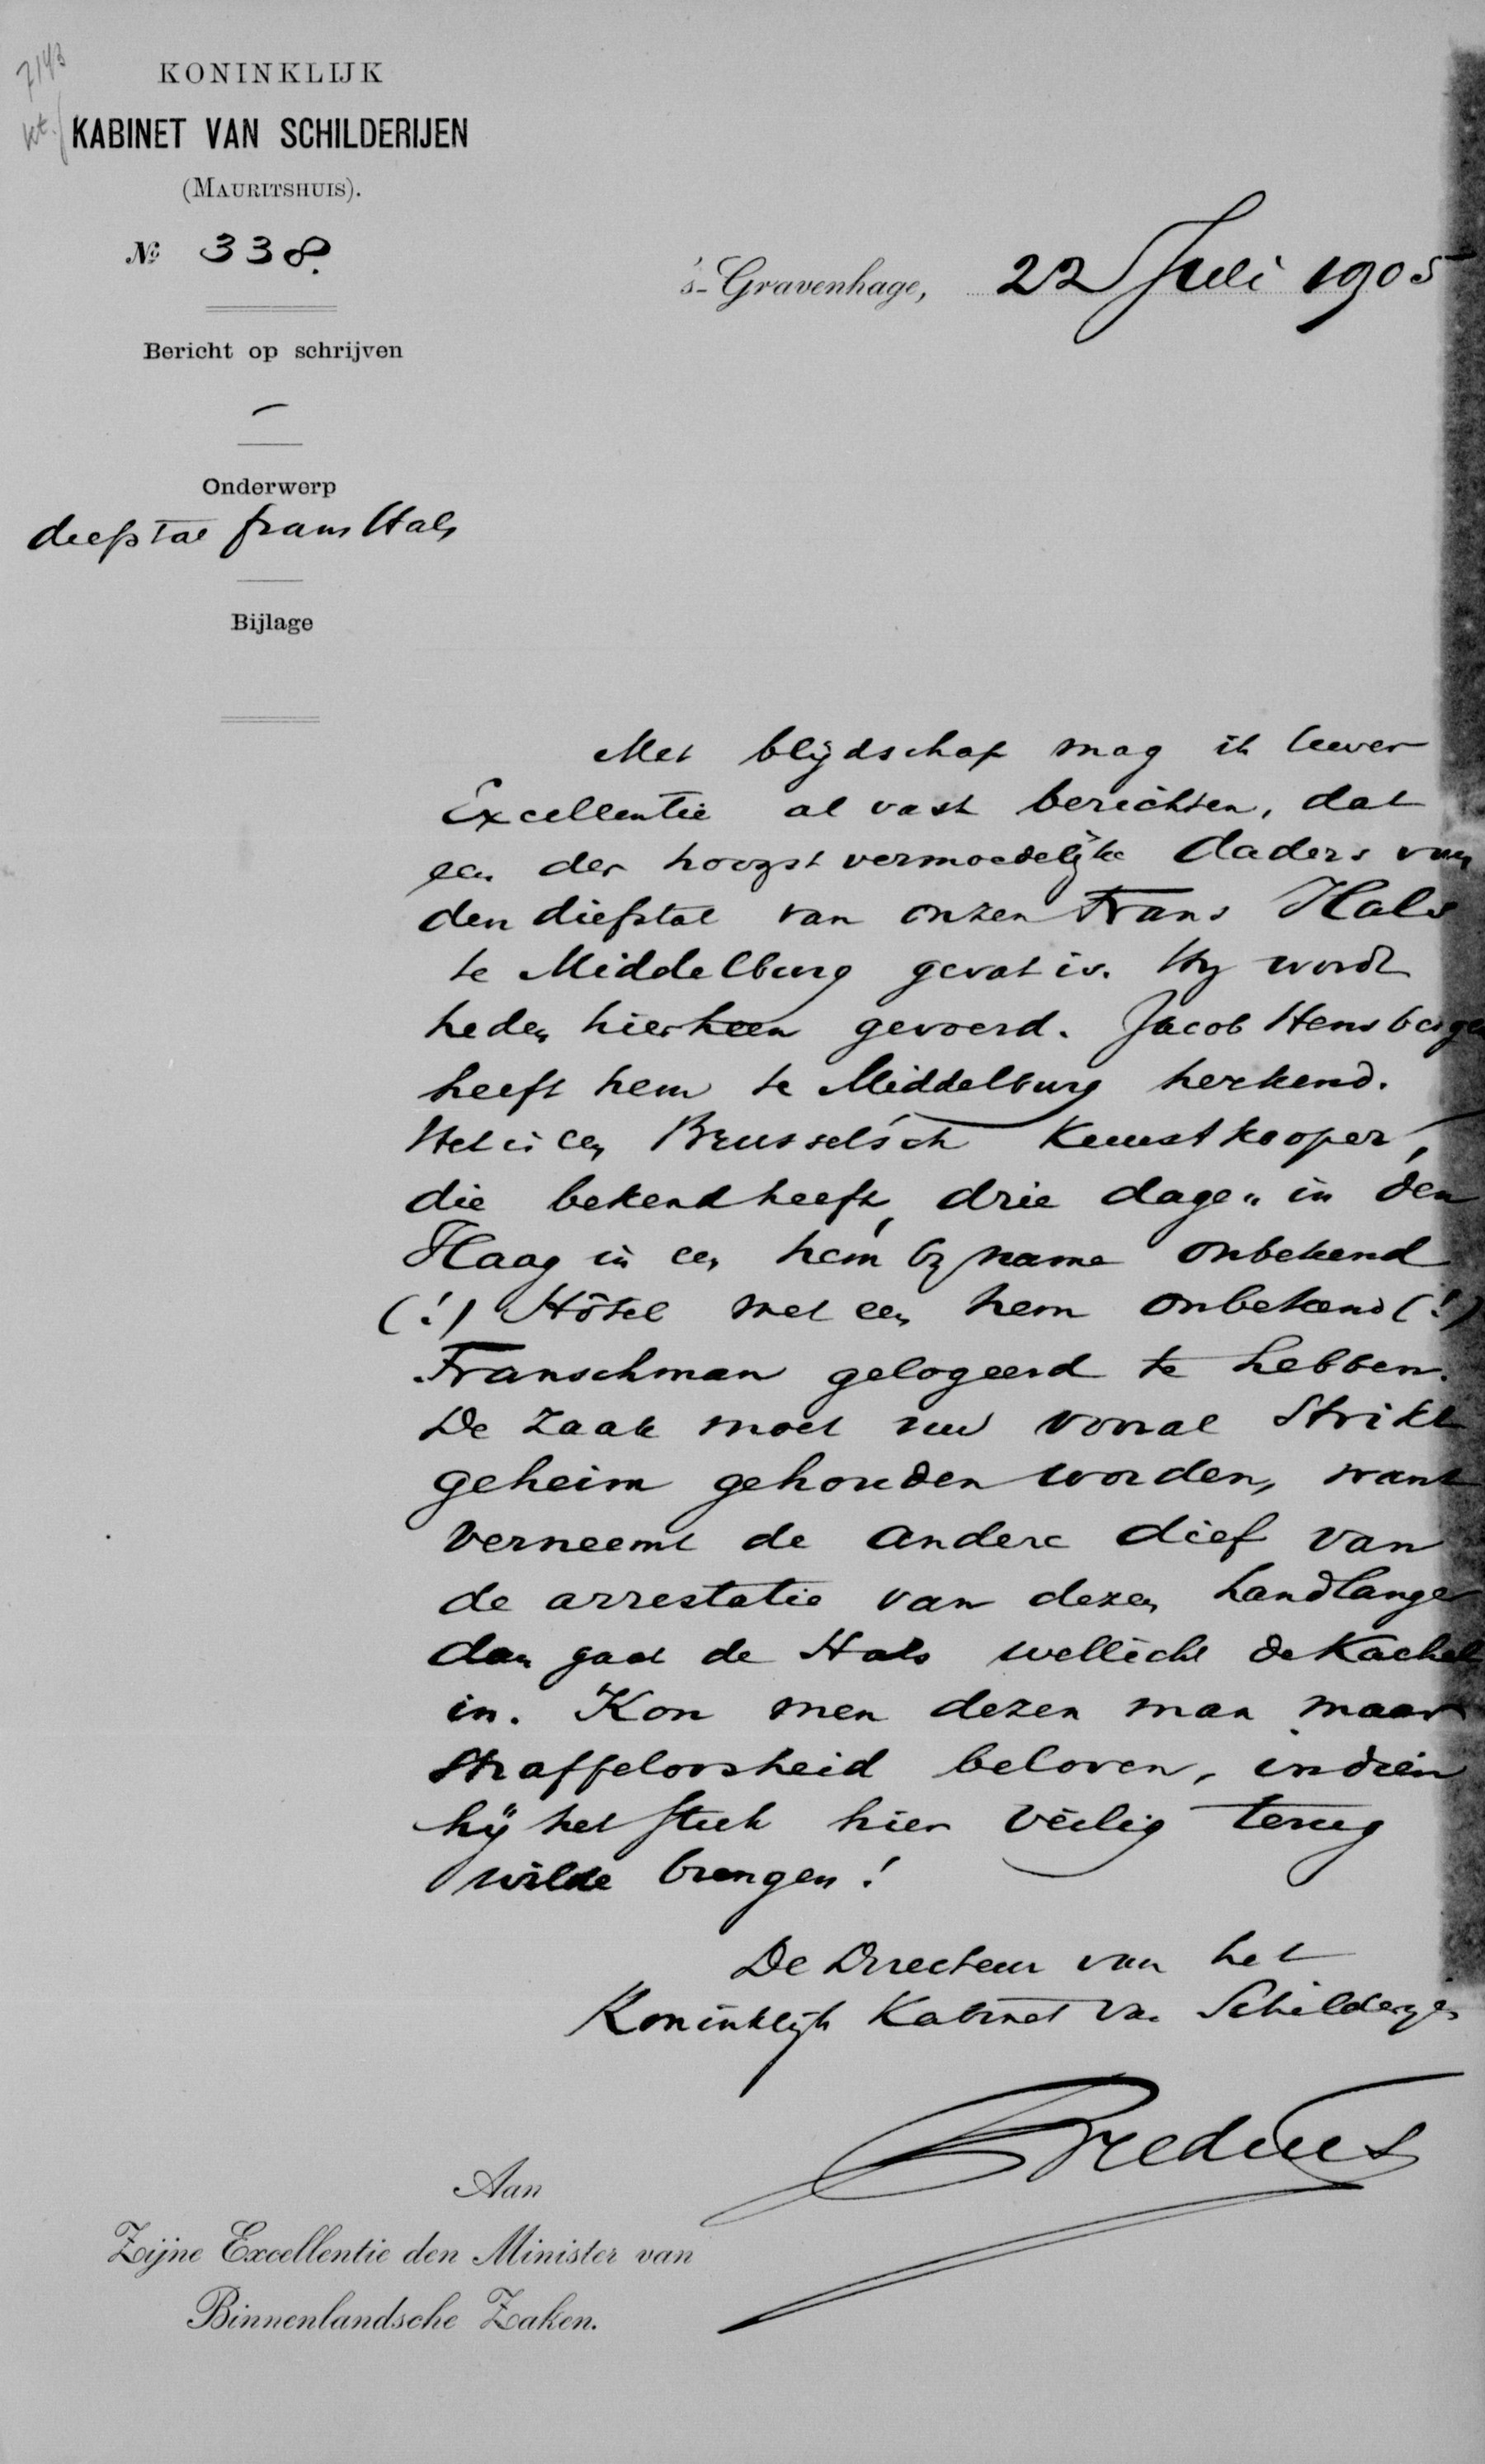 7143
kt.
KONINKLIJK
KABINET VAN SCHILDERIJEN
(MAURITSHUIS).
No 338.
's-Gravenhage, 22 Juli 1905
Bericht op schrijven
—
Onderwerp
diefstal frans Hals
Bijlage
Met blijdschap mag ik Uwer
Excellentie al vast berichten, dat
een der hoogst vermoedelijke daders van
den diefstal van onzen Frans Hals
te Middelburg gevat is. Hij wordt
heden hierheen gevoerd. Jacob Hensbergen
heeft hem te Middelburg herkend.
Het is een Brusselsch Kunstkooper,
die bekend heeft, drie dagen in den
Haag in een hem bij name onbekend
(!) Hôtel met een hem onbekend (!)
Franschman gelogeerd te hebben.
De zaak moet nu vooral strikt
geheim gehouden worden, want
verneemt de andere dief van
de arrestatie van dezen handlanger
dan gaat de Hals wellicht de Kachel
in. Kon men dezen man maar
straffeloosheid beloven, indien
hij het stuk hier veilig terug
wilde brengen!
De Directeur van het
Koninklijk Kabinet van Schilderijen
Bredius
Aan
Zijne Excellentie den Minister van
Binnenlandsche Zaken.